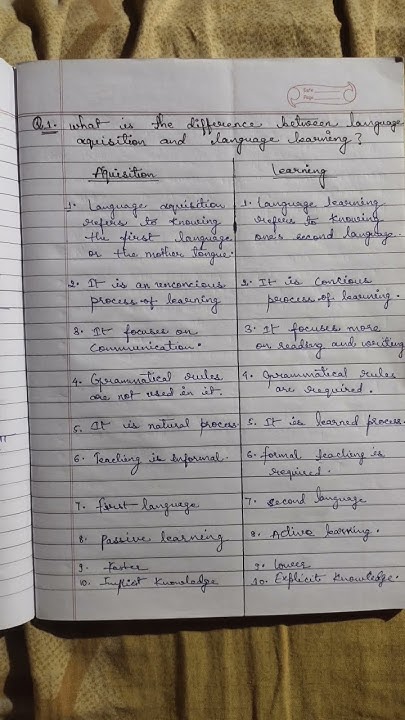 Date
Page
Q.1. What is the difference between language
aquisition and language learning?
Aquisition
Learning
1. Language aquisition
refers to knowing
the first language
or the mother tongue.
1. Language learning
refers to knowing
one's second language.
2. It is an unconcious
process of learning
2. It is concious
process of learning.
3. It focuses on
communication.
3. It focuses more
on reading and writing
4. Grammatical rules
are not used in it.
4. Grammatical rules
are required.
5. It is natural process.
5. It is learned process.
6. Teaching is informal.
6. formal teaching is
required.
7. first language
7. second language
8. passive learning
8. Active learning.
9. faster
9.
10. Implicit knowledge
10. Explicit knowledge.